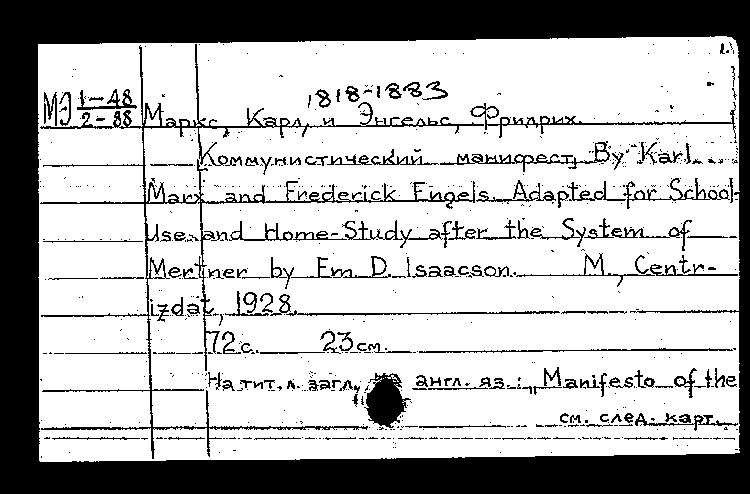 1.
1818-1883
МЭ 1-48 Маркс, Карл, и Энгельс, Фридрих.
2-88
Коммунистический манифест, By Karl
Marx and Frederick Engels. Adapted for School-
Use and Home-Study after the System of
Mertner by Em. D. Isaacson. М., Centr-
izdat, 1928.
72 с. 23 см.
На тит. л. загл. на англ. яз.: „Manifesto of the
см. след. карт.